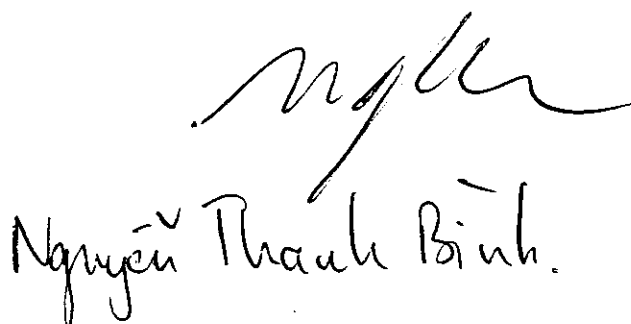 Nguyễn Thanh Bình.